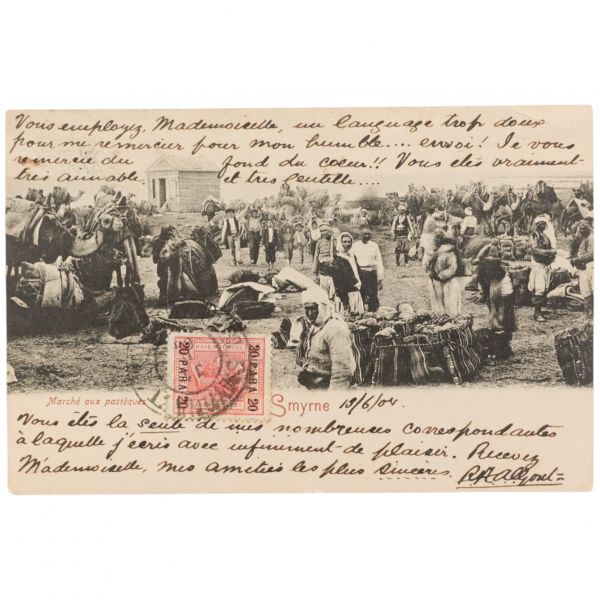 Vous employez, Mademoiselle, un language trop doux
pour me remercier pour mon humble.... envoi! Je vous
remercie du fond du coeur!! Vous etes vraiment
très aimable et tres Gentille....
20 PARA 20
20 PARA 20
Marché aux pastèques
Smyrne 13/6/04.
Vous êtes la seule de mes nombreuses correspondantes
à laquelle j'écris avec infiniment de plaisir. Recevez
Mademoiselle, mes amitiés les plus sincères.